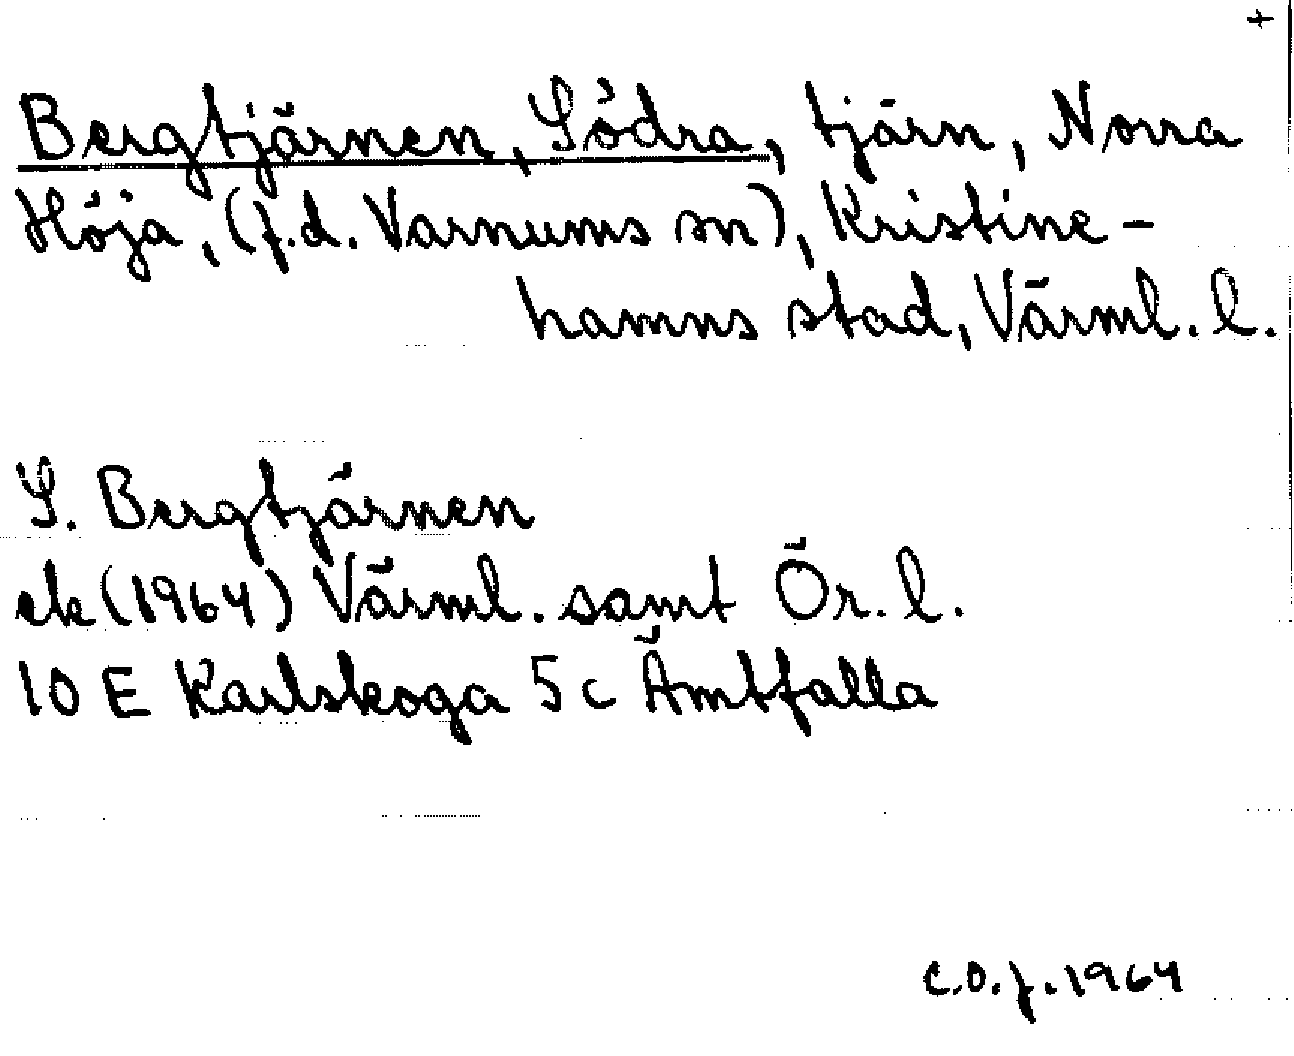 +
Bergtjärnen, Södra, tjärn, Norra
Höja, (f.d. Varnums sn), Kristine-
hamns stad, Värml. l.
S. Bergtjärnen
ek (1964) Värml. samt Ör. l.
10 E Karlskoga 5 c Ämtfalla
C.O.f. 1964